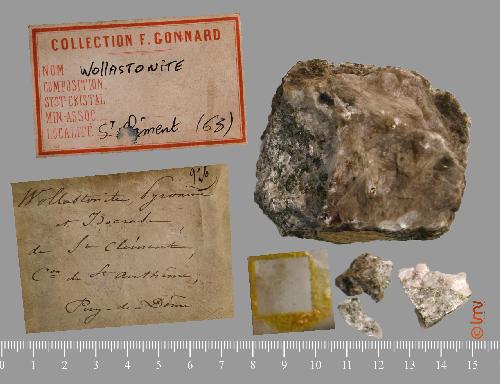 COLLECTION F. GONNARD
NOM WOLLASTONITE
COMPOSITION
SYST. CRISTAL
MIN. ASSOC.
LOCALITÉ St Clément (63)
Wollastonite,
et
de St Clément,
Con de St Anthême,
Puy-de-Dôme
0 1 2 3 4 5 6 7 8 9 10 11 12 13 14 15